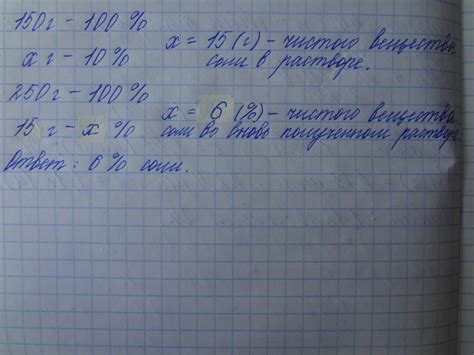 150 г - 100 %
х г - 10 %
х = 15 (г) - чистого вещества
соли в растворе.
250 г - 100 %
15 г - х %
х = 6 (%) - чистого вещества
соли во вновь полученном растворе
Ответ: 6 % соли.